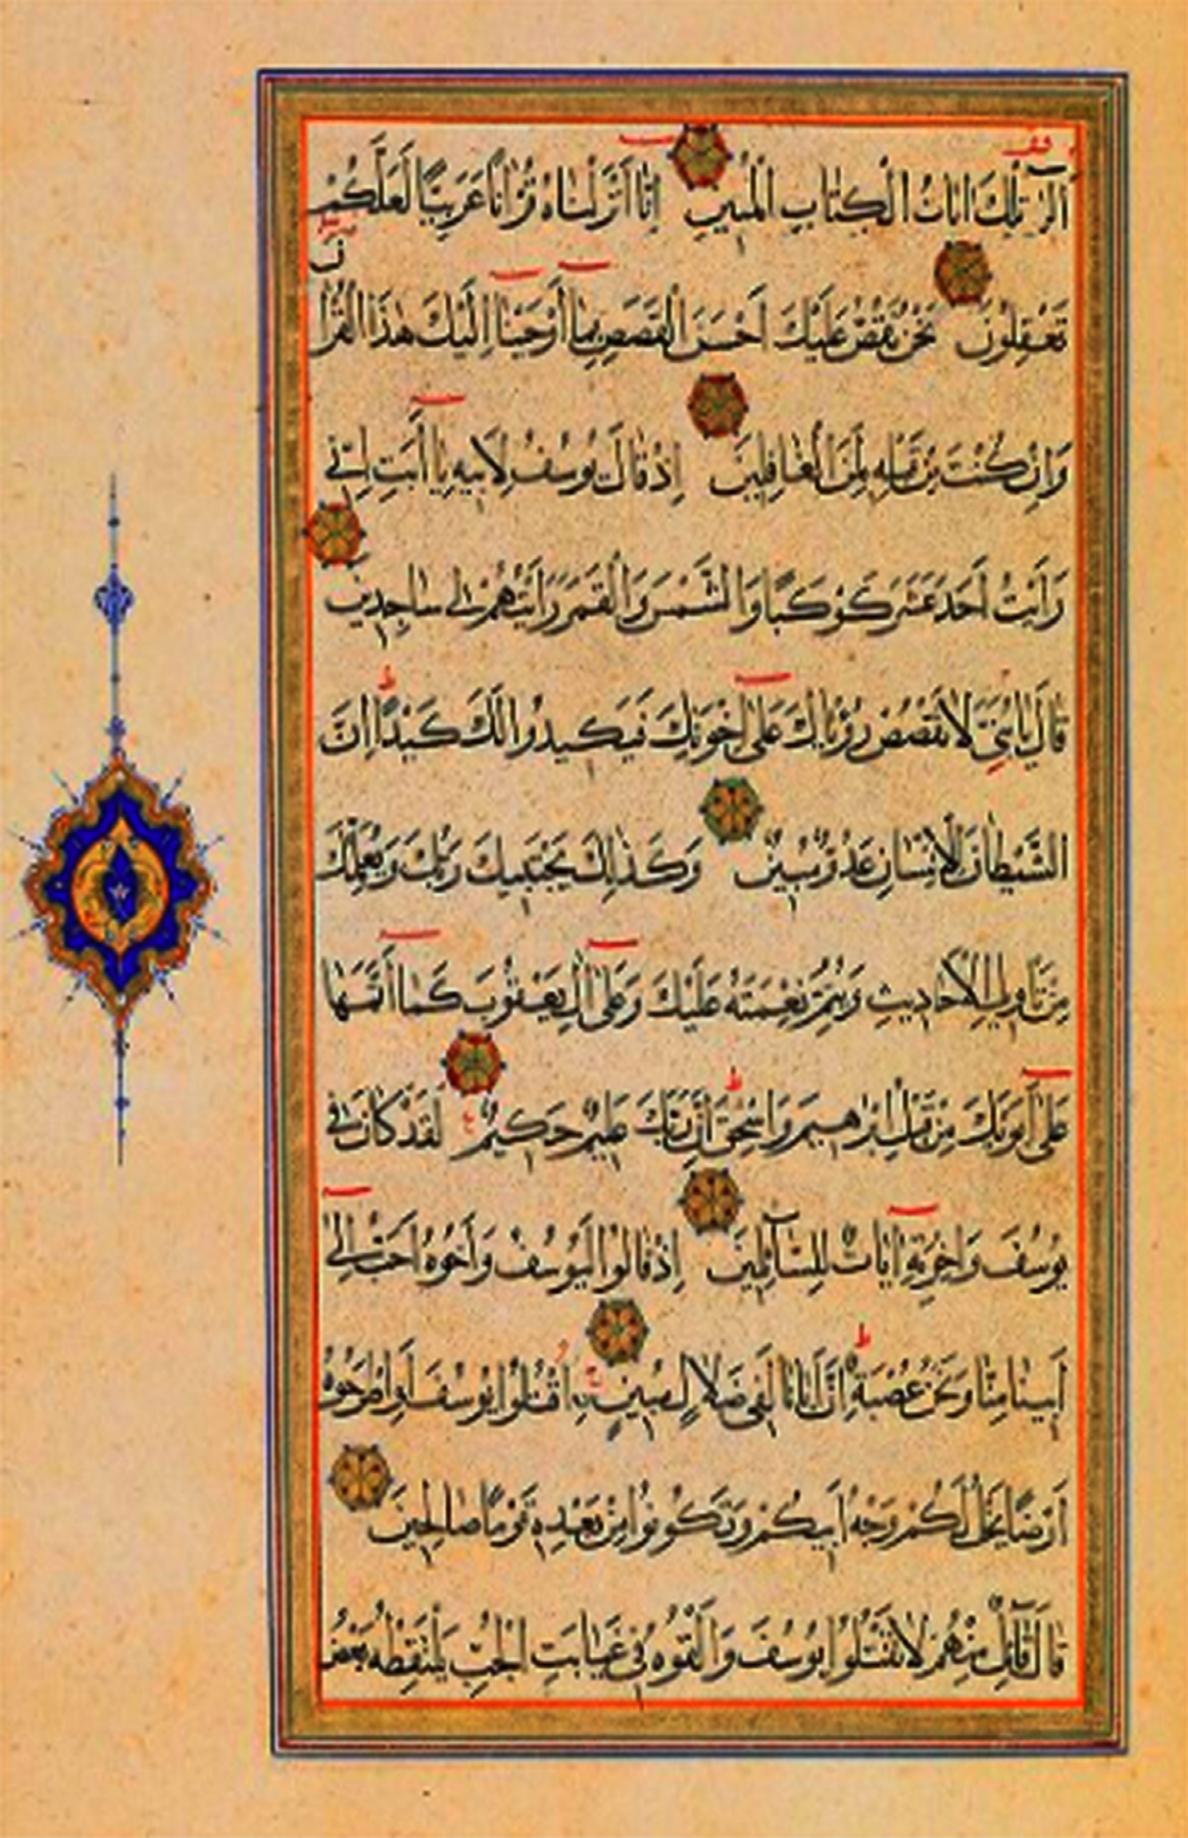 الر تلك ايات الكتاب المبين انا انزلناه قرانا عربيا لعلكم
تعقلون نحن نقص عليك احسن القصص بما اوحينا اليك هذا القران
وان كنت من قبله لمن الغافلين اذ قال يوسف لابيه يا ابت اني
رايت احد عشر كوكبا والشمس والقمر رايتهم لي ساجدين
قال يا بني لا تقصص رؤياك على اخوتك فيكيدوا لك كيدا ان
الشيطان للانسان عدو مبين وكذلك يجتبيك ربك ويعلمك
من تاويل الاحاديث ويتم نعمته عليك وعلى ال يعقوب كما اتمها
على ابويك من قبل ابرهيم واسحق ان ربك عليم حكيم لقد كان في
يوسف واخوته ايات للسائلين اذ قالوا ليوسف واخوه احب الى
ابينا منا ونحن عصبة ان ابانا لفي ضلال مبين اقتلوا يوسف او اطرحوه
ارضا يخل لكم وجه ابيكم وتكونوا من بعده قوما صالحين
قال قائل منهم لا تقتلوا يوسف والقوه في غيابت الجب يلتقطه بعض